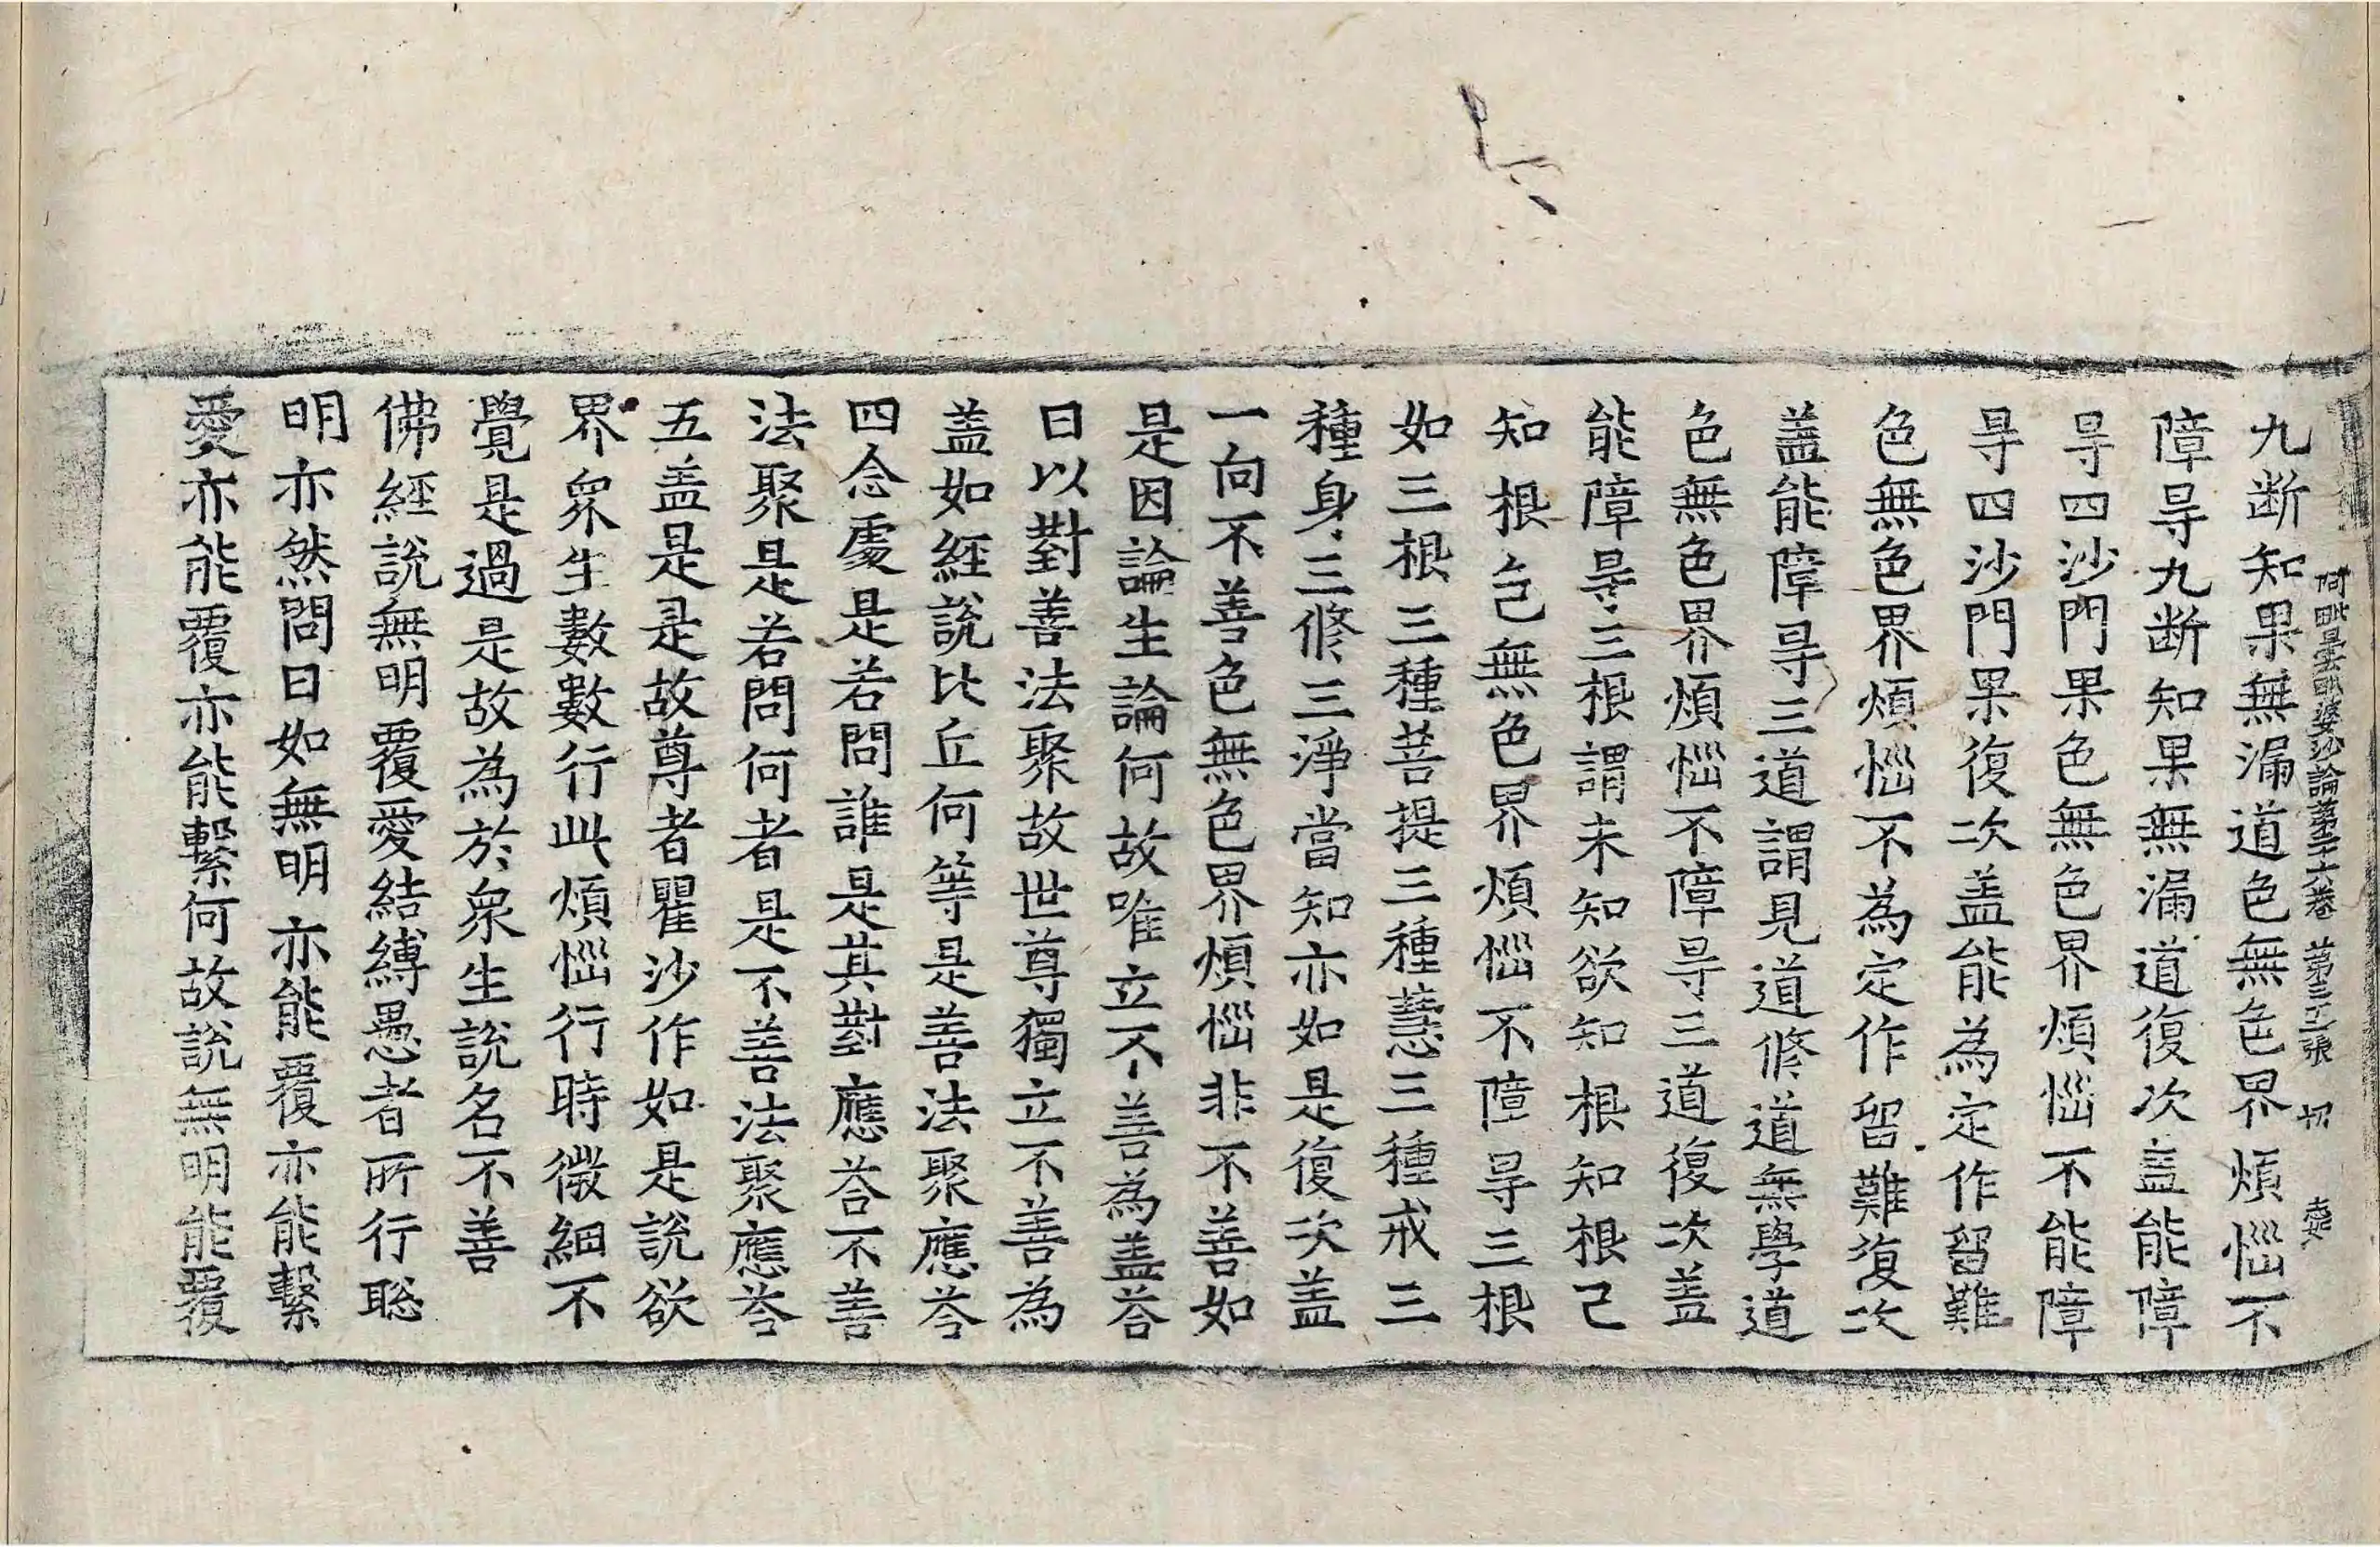 阿毗曇毗婆沙論第二十六卷 第三十二張 切
九断知果無漏道色無色界煩惱不
障㝵九断知果無漏道復次盖能障
㝵四沙門果色無色界煩惱不能障
㝵四沙門果復次盖能為定作留難
色無色界煩惱不為定作留難復次
盖能障㝵三道謂見道修道無學道
色無色界煩惱不障㝵三道復次盖
能障㝵三根謂未知欲知根知根已
知根色無色界煩惱不障㝵三根
如三根三種菩提三種慧三種戒三
種身三修三淨當知亦如是復次盖
一向不善色無色界煩惱非不善如
是因論生論何故唯立不善為盖荅
曰以對善法聚故世尊獨立不善為
盖如經說比丘何等是善法聚應荅
四念處是若問誰是其對應荅不善
法聚是若問何者是不善法聚應荅
五盖是是故尊者瞿沙作如是說欲
界衆生數數行此煩惱行時微細不
覺是過是故為於衆生說名不善
佛經說無明覆愛結縛愚者所行聡
明亦然問曰如無明亦能覆亦能繫
愛亦能覆亦能繫何故說無明能覆